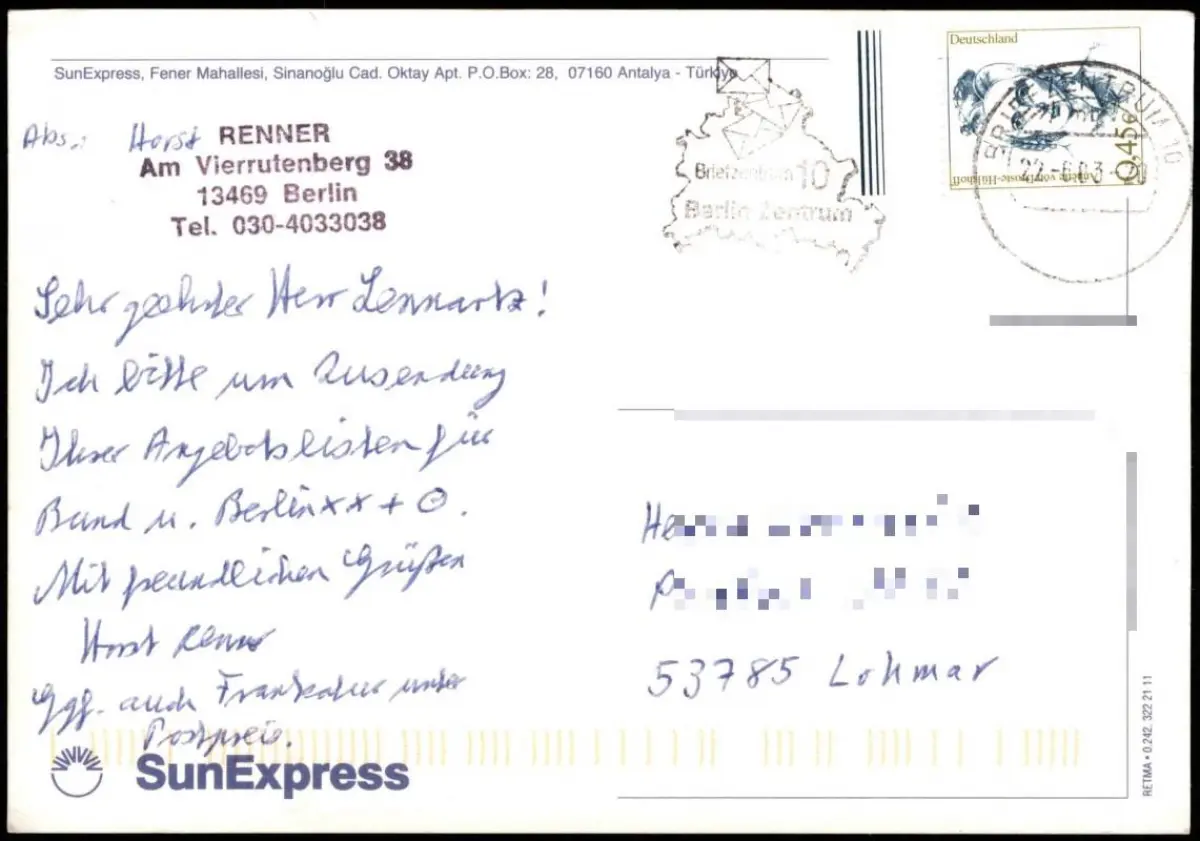 SunExpress, Fener Mahallesi, Sinanoğlu Cad. Oktay Apt. P.O.Box: 28, 07160 Antalya - Türkiye
Deutschland
0,45€
Annette von Droste-Hülshoff
BRIEFZENTRUM 10
22.-6.03
Briefzentrum 10
Berlin Zentrum
Abs.: Horst RENNER
Am Vierrutenberg 38
13469 Berlin
Tel. 030-4033038
Sehr geehrter Herr Lennartz!
Ich bitte um Zusendung
Ihrer Angebotslisten für
Bund u. Berlin xx + ⊙.
Mit freundlichen Grüßen
Horst Renner
Ggf. auch Frankatur unter
Postpreis.
53785 Lohmar
SunExpress
RETMA • 0.242. 322 21 11